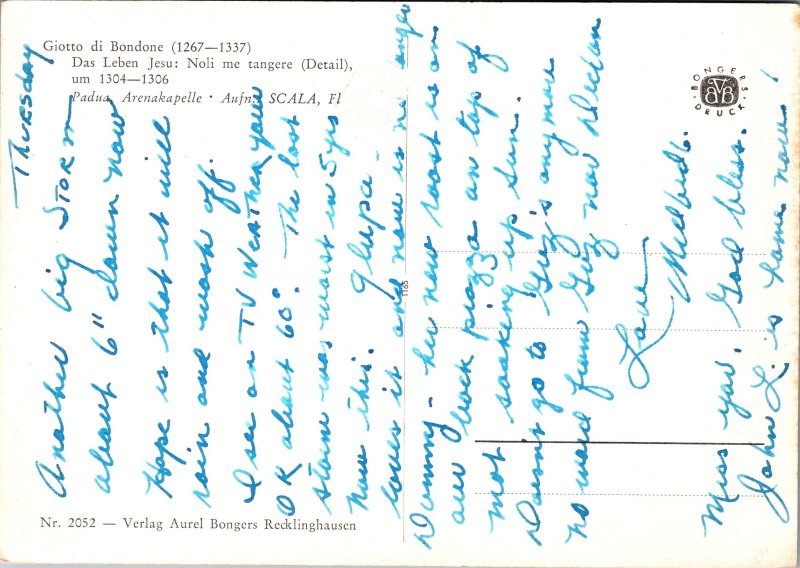 Giotto di Bondone (1267—1337)
Das Leben Jesu: Noli me tangere (Detail),
um 1304—1306
Padua, Arenakapelle • Aufn.: SCALA, Fl
BONGERS
DRUCK
THURSDAY
Another big STORM
about 6" down now
Hope is that it will
rain and wash off.
I see on TV Weather your
OK about 60°. The last
storm was worst in 5 yrs
now this. Glupa-
loves it and now is no longer
Dummy - her now roost is on
our back piazza on top of
mot soaking up sun.
Doesn't go to Guz's any more
no word from Guz nor Declan
Love
Mildred
Miss you. God bless.
John L. is home now!
1165
Nr. 2052 — Verlag Aurel Bongers Recklinghausen